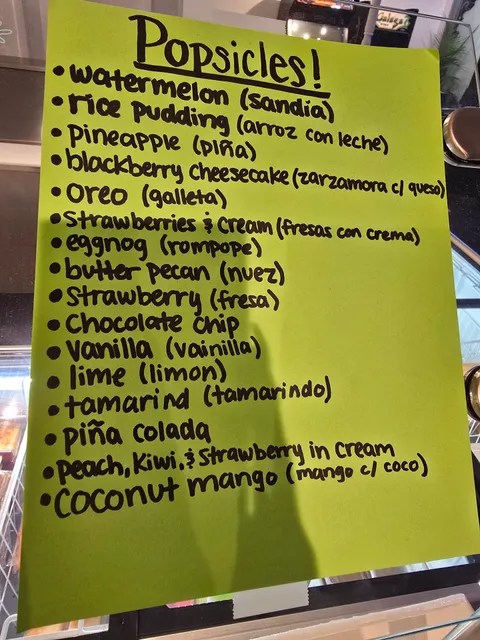 Popsicles!
• watermelon (sandía)
• rice pudding (arroz con leche)
• pineapple (piña)
• blackberry cheesecake (zarzamora c/ queso)
• oreo (galleta)
• Strawberries & Cream (fresas con crema)
• eggnog (rompope)
• butter pecan (nuez)
• Strawberry (fresa)
• Chocolate chip
• vanilla (vainilla)
• lime (limon)
• tamarind (tamarindo)
• piña colada
• Peach, Kiwi, & Strawberry in Cream
• Coconut mango (mango c/ coco)